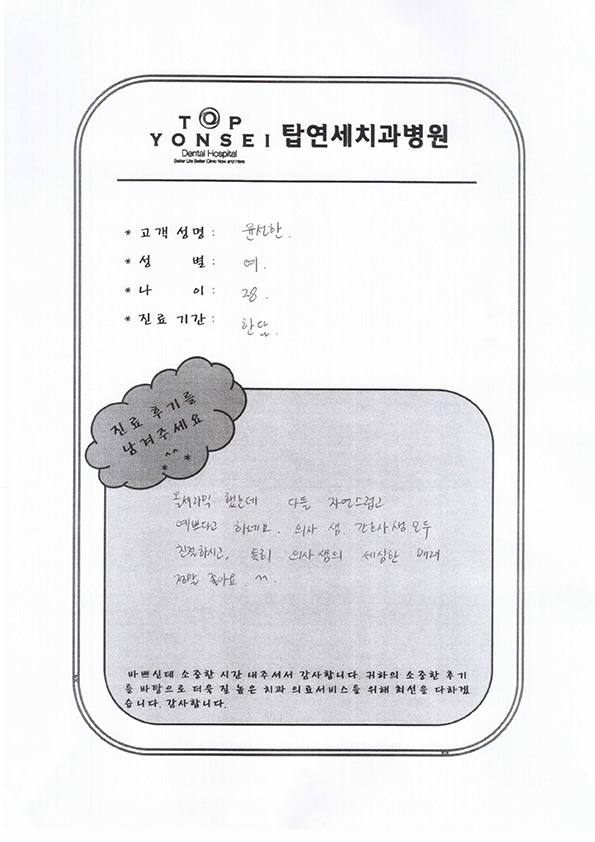 TOP
YONSEI 탑연세치과병원
Dental Hospital
Better Life Better Clinic Now and Here
* 고객 성명 : 윤선한.
* 성 별 : 여.
* 나 이 : 28.
* 진료 기간 : 한달.
진료 후기를
남겨주세요
^^
* *
올세라믹 했는데 다들 자연스럽고
예쁘다고 하네요. 의사 샘. 간호사샘 모두
친절하시고, 특히 의사샘의 세심한 배려
정말 좋아요. ^^.
바쁘신데 소중한 시간 내주셔서 감사합니다. 귀하의 소중한 후기
를 바탕으로 더욱 질 높은 치과 의료서비스를 위해 최선을 다하겠
습니다. 감사합니다.